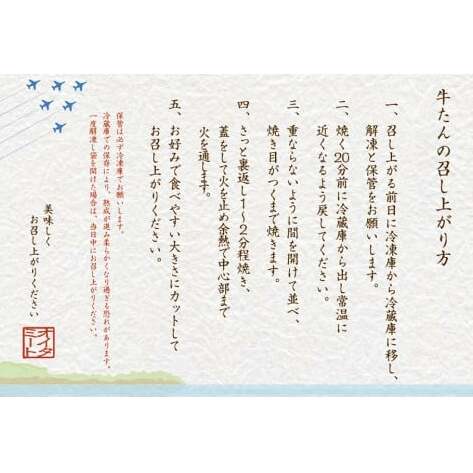 牛たんの召し上がり方
一、召し上がる前日に冷凍庫から冷蔵庫に移し、
解凍と保管をお願いします。
二、焼く20分前に冷蔵庫から出し常温に
近くなるよう戻してください。
三、重ならないように間を開けて並べ、
焼き目がつくまで焼きます。
四、さっと裏返し1〜2分程焼き、
蓋をして火を止め余熱で中心部まで
火を通します。
五、お好みで食べやすい大きさにカットして
お召し上がりください。
保管は必ず冷凍庫でお願いします。
冷蔵庫での保存により、熟成が進み柔らかくなり過ぎる恐れがあります。
一度解凍し袋を開けた場合は、当日中にお召し上がりください。
美味しく
お召し上がりください
オイダ
ミート